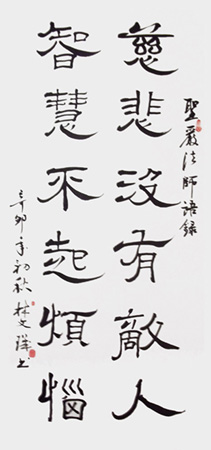 聖嚴法師語錄
慈悲沒有敵人
智慧不起煩惱
辛卯年初秋林文瑞書